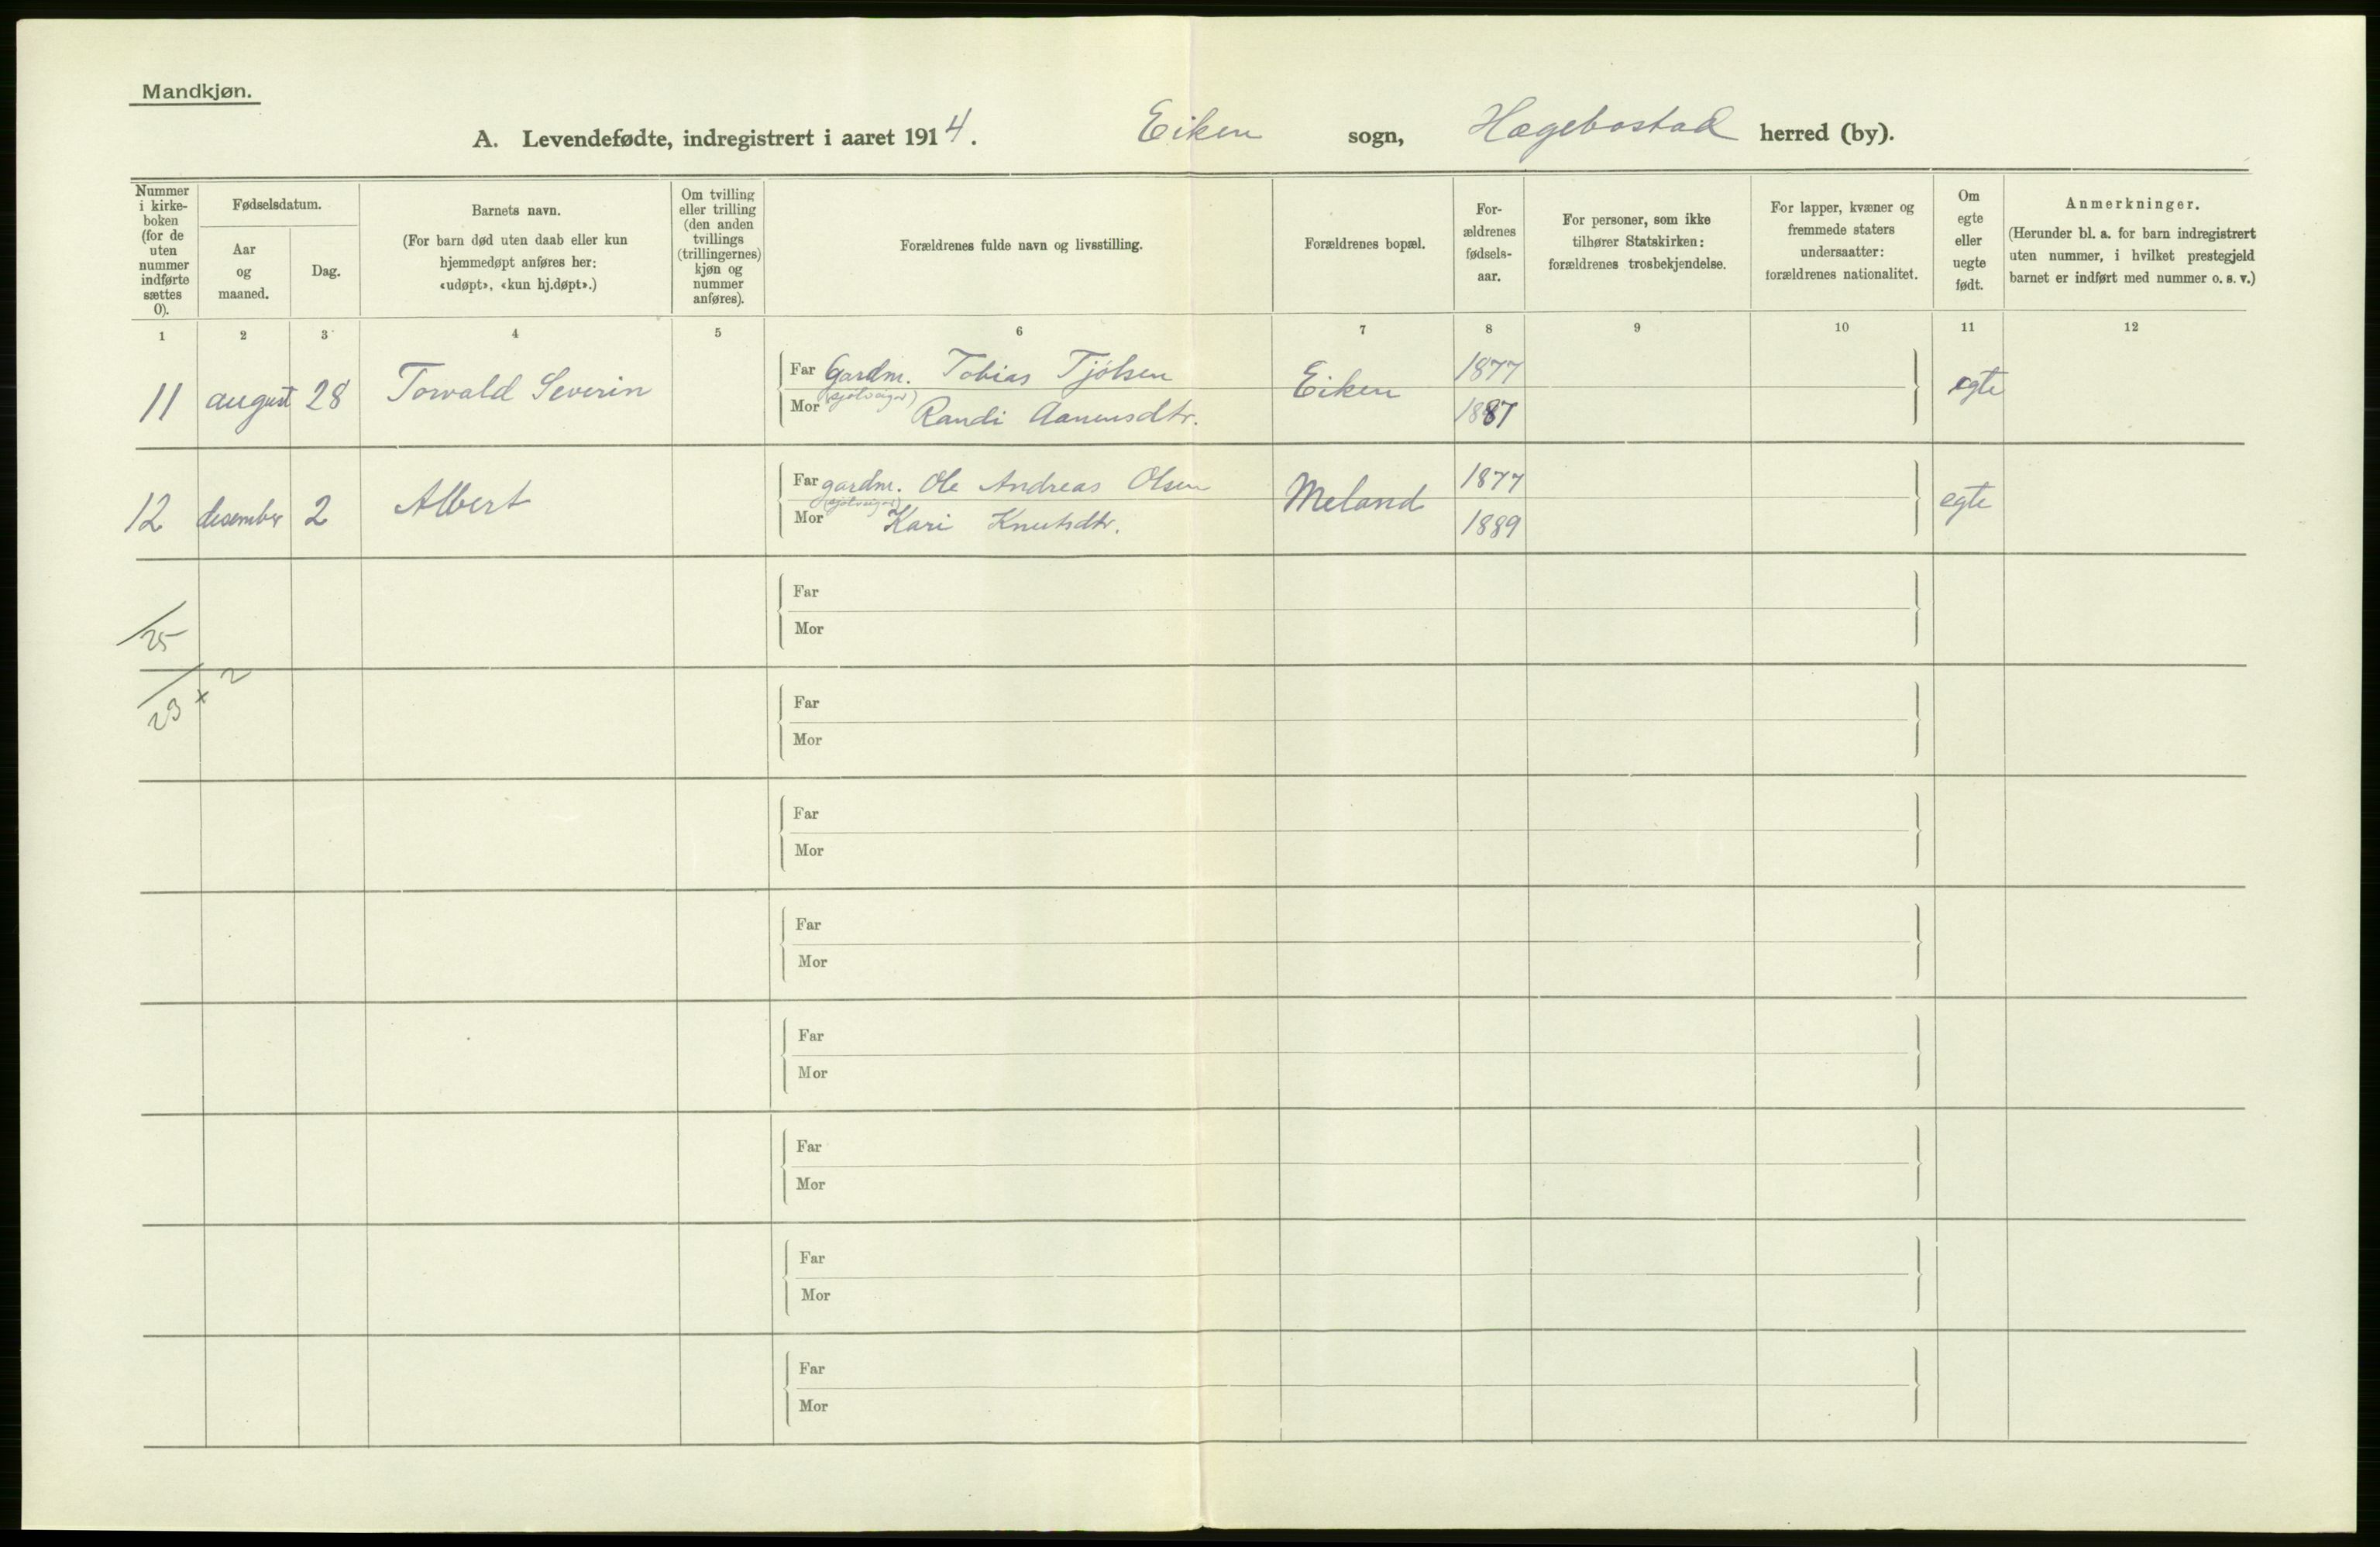 Mandkjøn.
A. Levendefødte, indregistrert i aaret 1914. Eiken sogn, Hægebostad herred (by).
Nummer i kirke-boken (for de uten nummer indførte sættes 0).
Fødselsdatum.
Aar og maaned.
Dag.
Barnets navn.
(For barn død uten daab eller kun hjemmedøpt anføres her: «udøpt», «kun hj.døpt».)
Om tvilling eller trilling (den anden tvillings (trillingernes) kjøn og nummer anføres).
Forældrenes fulde navn og livsstilling.
Forældrenes bopæl.
For-ældrenes fødsels-aar.
For personer, som ikke tilhører Statskirken: forældrenes trosbekjendelse.
For lapper, kvæner og fremmede staters undersaatter: forældrenes nationalitet.
Om egte eller uegte født.
Anmerkninger.
(Herunder bl. a. for barn indregistrert uten nummer, i hvilket prestegjeld barnet er indført med nummer o. s. v.)
1 2 3 4 5 6 7 8 9 10 11 12
Far Gardm. Tobias Tjölsen 1877
11 august 28 Torvald Severin Eiken egte
(sjölveiger)
Mor Randi Aanensdtr. 1887
Far gardm. Ole Andreas Olsen 1877
12 desember 2 Albert Meland egte
(sjölveiger)
Mor Kari Knutsdtr. 1889
Far
25
Mor
23 x 2
Far
Mor
Far
Mor
Far
Mor
Far
Mor
Far
Mor
Far
Mor
Far
Mor